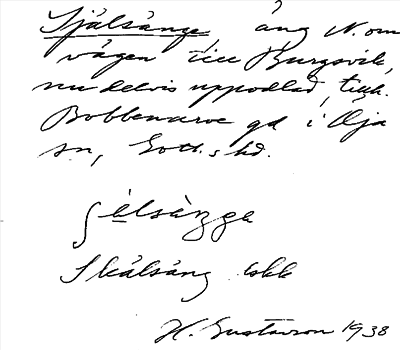 Själsänge, äng N. om
vägen till Burgsvik,
nu delvis uppodlad, tillh.
Bobbenarve gd i Öja
sn, Gotl:s hd.
ʃèlsàŋgɐ
Skälsäng
H. Gustavson 1938